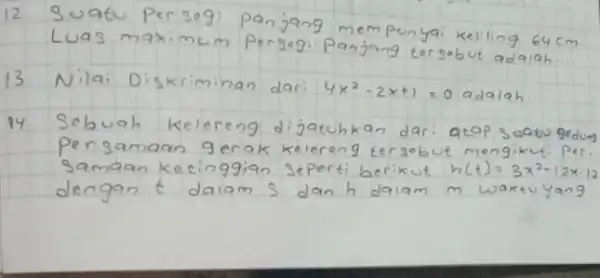 12 Suatu Persegi panjang mempunyai keliling 64 cm
Luas maximum Persegi Panjang tersebut adalah
13 Nilai Diskriminan dari 4x² - 2x + 1 = 0 adalah
14 Sebuah kelereng dijatuhkan dari atap suatu gedung
Persamaan gerak kelereng tersebut mengikuti Per-
samaan ketinggian seperti berikut h(t) = 3x² - 12x - 12
dengan t dalam s dan h dalam m waktu yang